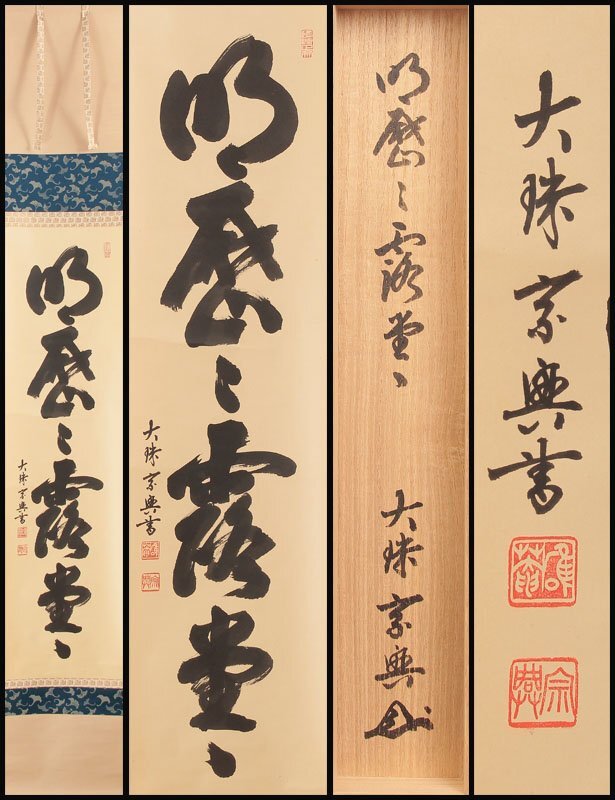 明歴々露堂々
大珠宗興書
明歴々露堂々
大珠宗興書
明歴々露堂々
大珠宗興
大珠宗興書
宗興